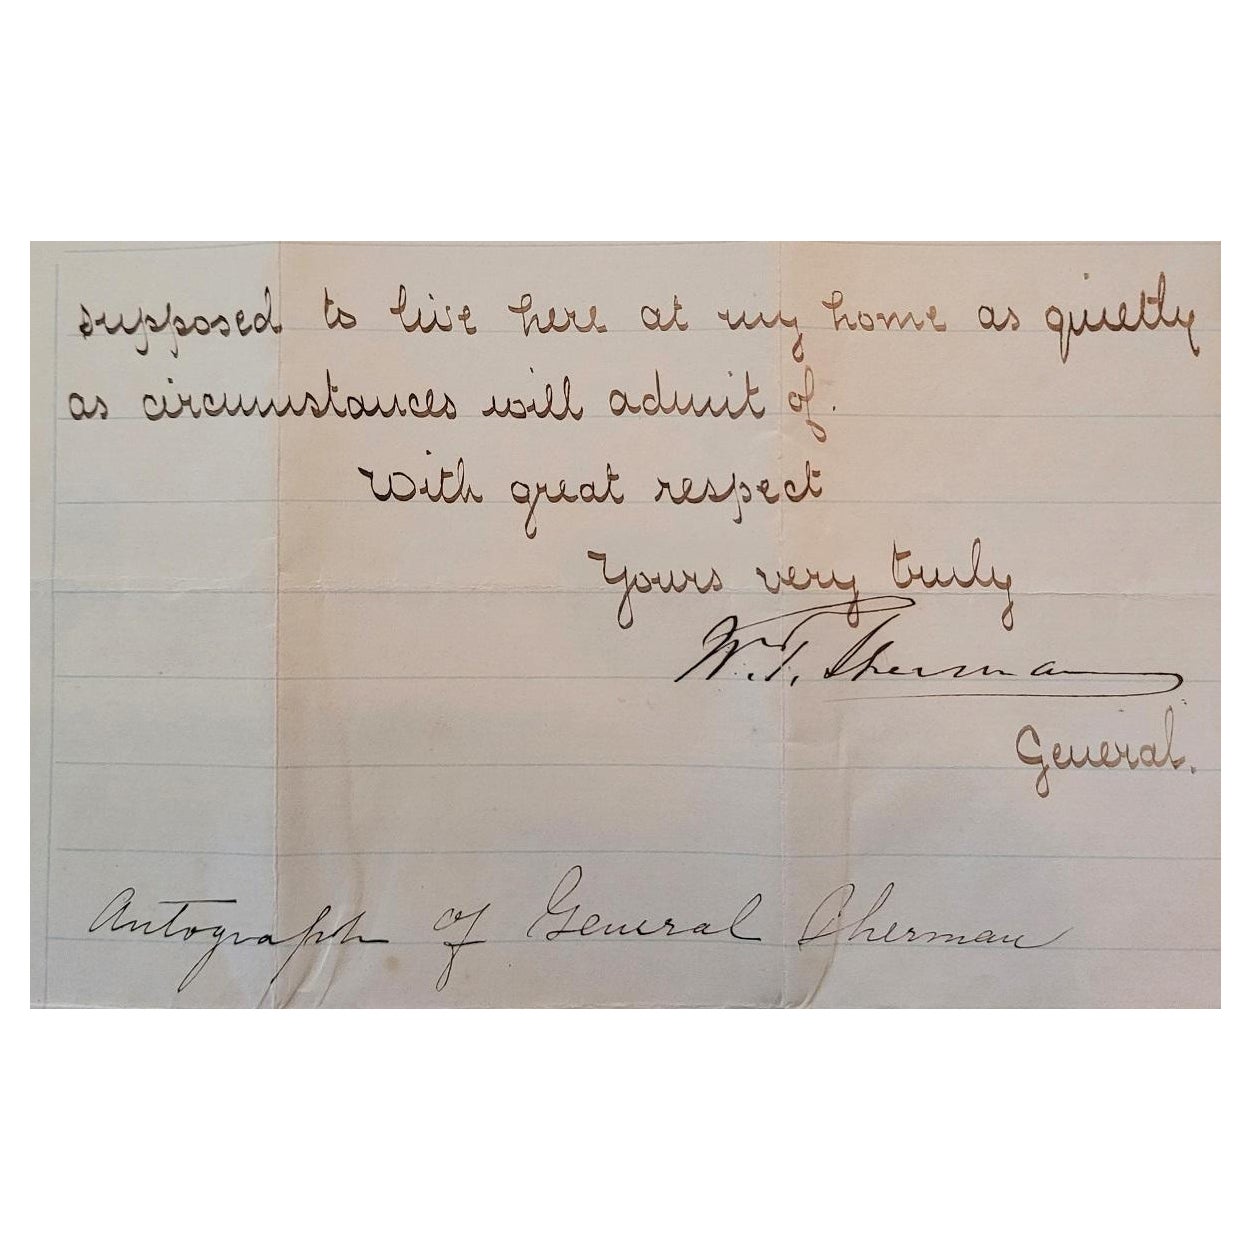 supposed to live here at my home as quietly
as circumstances will admit of.
With great respect
Yours very truly
W. T. Sherman
General.
Autograph of General Sherman